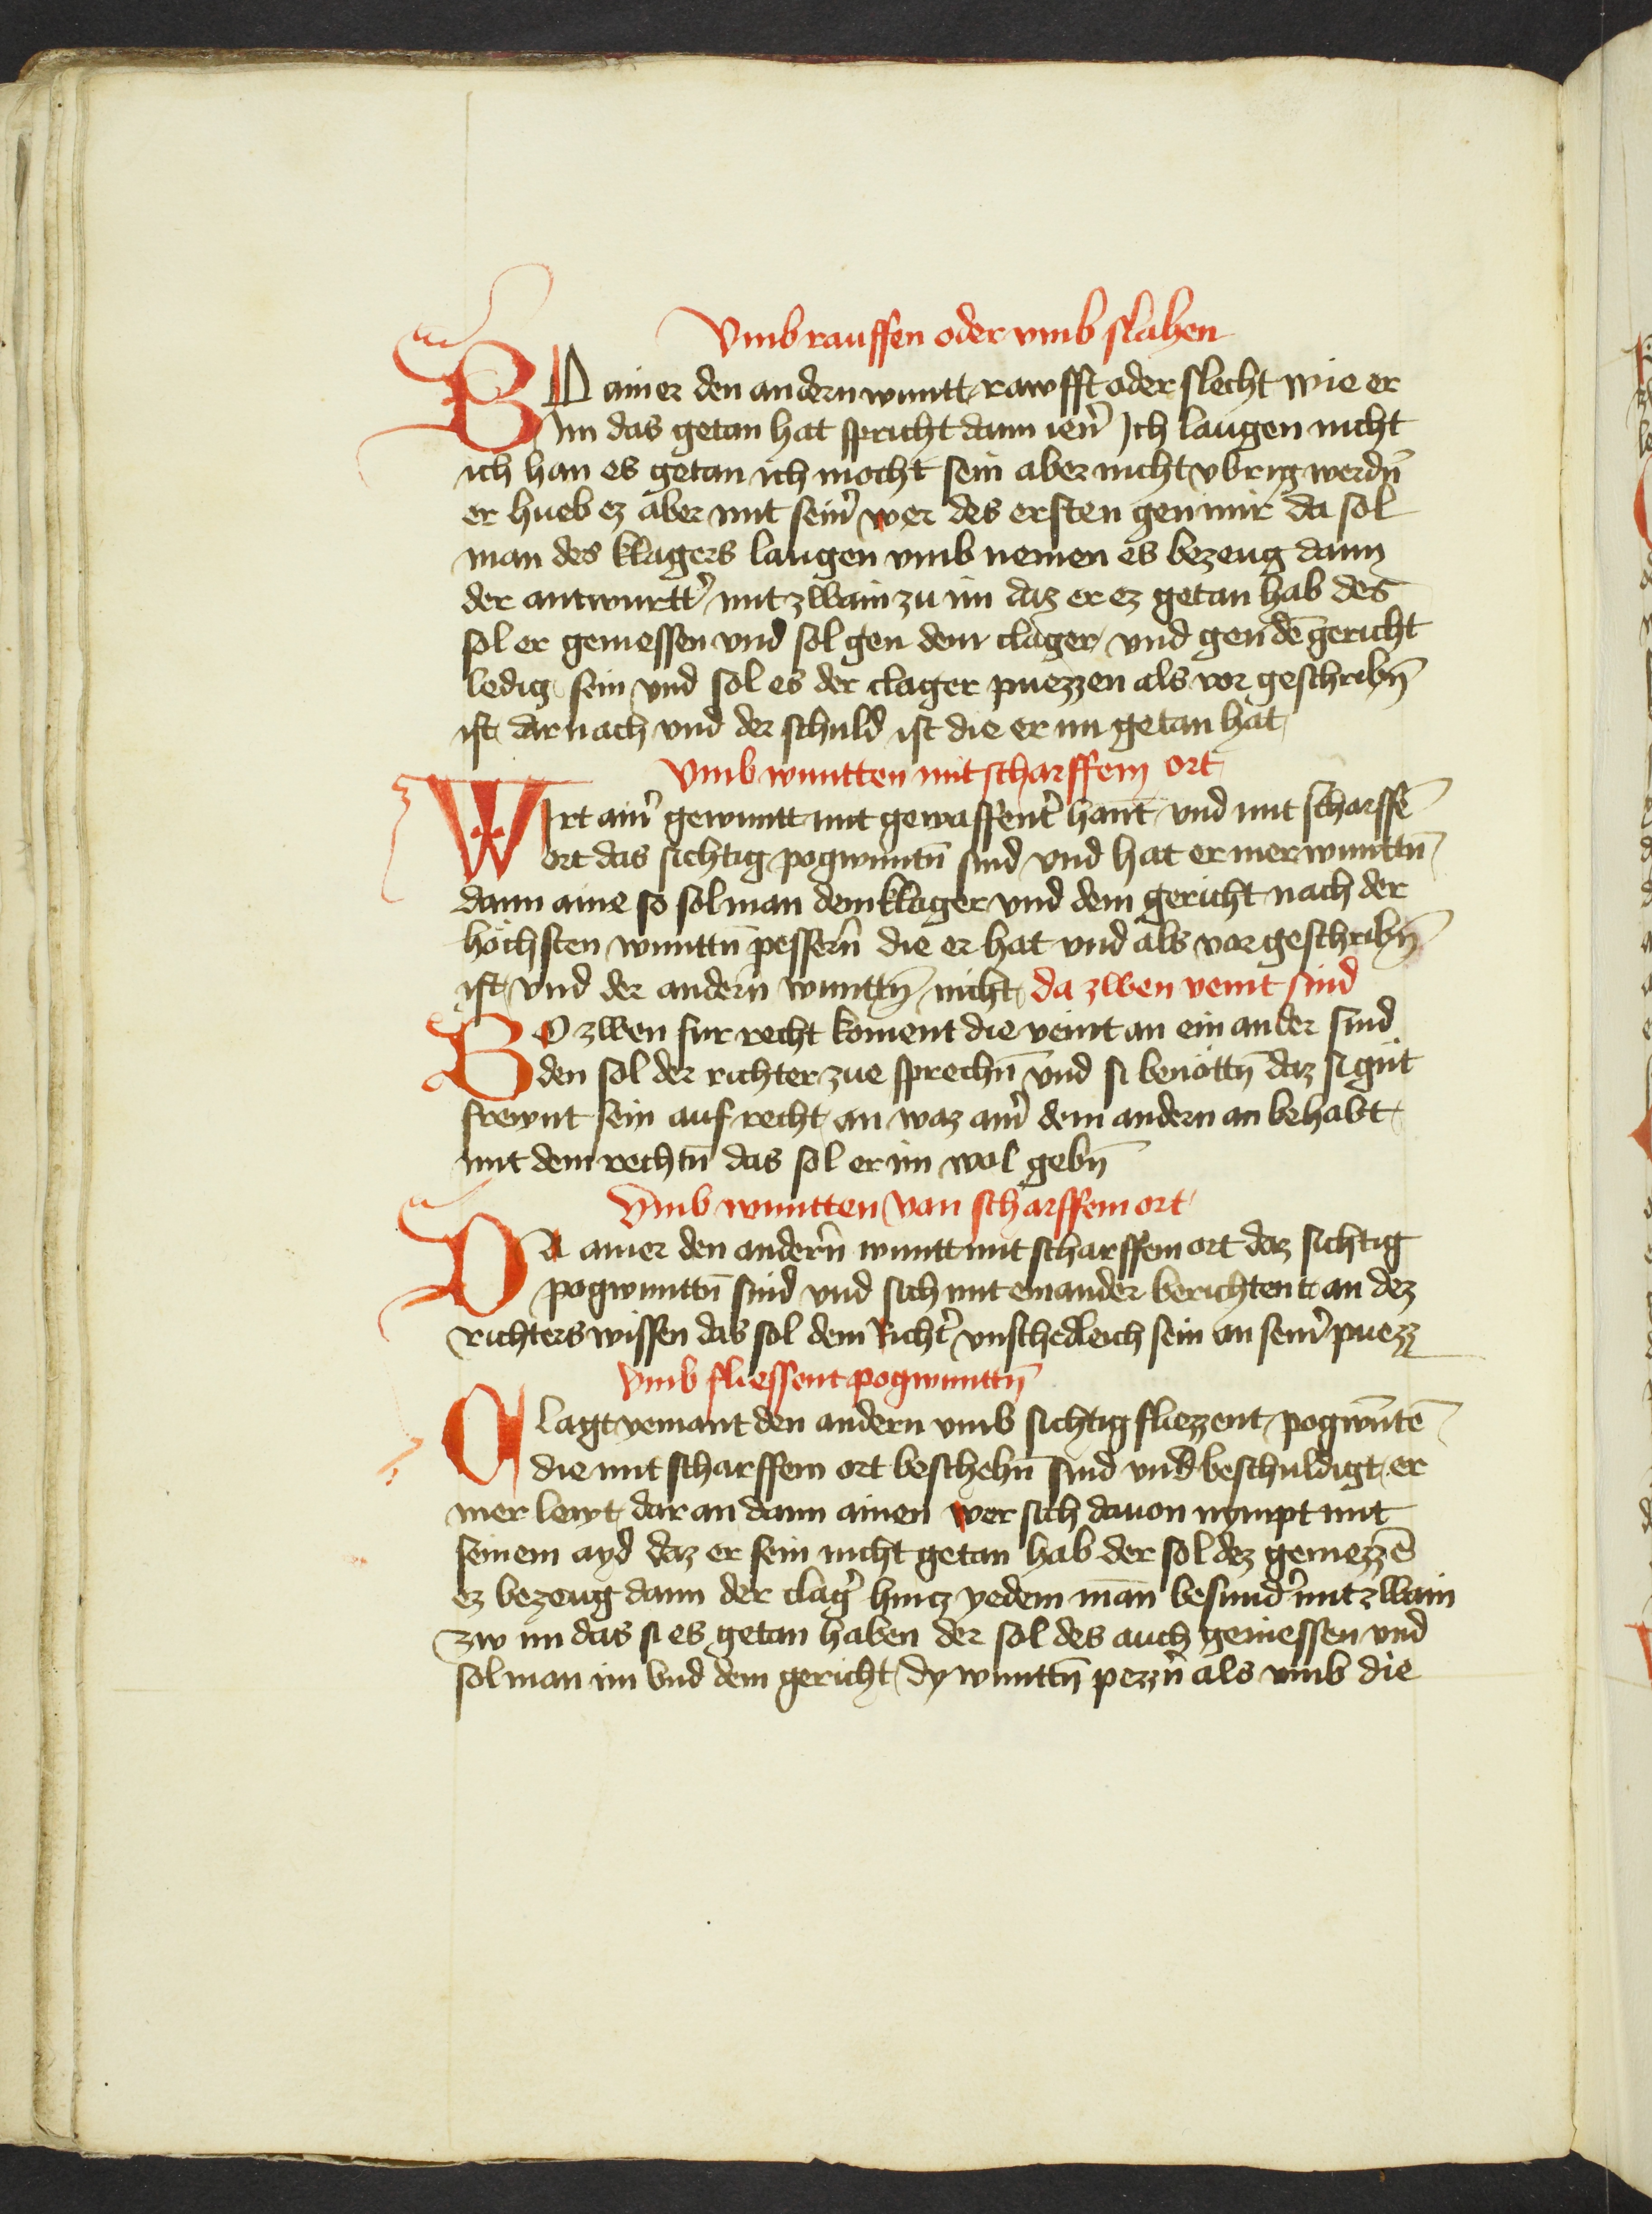 Vmb rauffen oder vmb slahen
BO ainer den andern wuntt rawfft oder slecht wie er
Im das getan hat spricht dann ien̕ Ich laugen nicht
ich han es getan ich mocht sein aber nicht vbrig werdn̄
er hueb ez aber mit sein̕ wer des ersten gen mir da sol
man des klagers laugen vmb nemen es bezeug dann
der antwurtt̕ mit zwain zu im daz er ez getan hab des
sol er geniessen vnd sol gen dem clager vnd gen dē gericht
ledig sein vnd sol es der clager puezzen als vor geschribn̄
ist dar nach vnd der schuld ist die er im getan hat
Vmb wuntten mit scharffem ort
WIrt ain̕ gewuntt mit gewaffent̕ hant vnd mit scharffē
ort das sichtig pogwuntn̄ sind vnd hat er mer wunttn̄
dann aine so sol man dem klager vnd dem gericht nach der
höchsten wunttn̄ pessern̄ die er hat vnd als vor geschribn̄
ist vnd der andern wunttn̄ nicht da zwen veint sind
BO zwen fur recht koment die veint an ein ander sind
den sol der richter zue sprechn̄ vnd si benöttn̄ daz si gut
frewnt sein auf recht an waz ain̕ dem andern an behabt
mit dem rechtn̄ das sol er im wol gebn̄
Vmb wuntten van scharffem ort
DA ainer den andern̄ wuntt mit scharffem ort daz sichtig
pogwunttn̄ sind vnd sich mit einander berichtent an dez
richters wissen das sol dem Richt̕ vnschedleich sein an sein̕ puezz
Vmb fliessent pogwunttn̄
Clagt yemant den andern vmb sichtig fliezzent pogwūtē
die mit scharffem ort beschehn̄ sind vnd beschuldigt er
mer lewt dar an dann ainen wer sich dauon nympt mit
seinem ayd daz er sein nicht getan hab der sol dez geniezzē
ez bezeug dann der clag̕ hincz yedem man besund̕ mit zwain
zw im das si es getan haben der sol des auch geniessen vnd
sol man im vnd dem gericht dy wunttn̄ pezzn̄ als vmb die